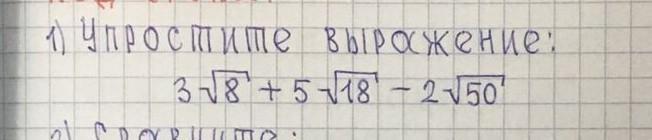 1) Упростите выражение:
3√8 + 5√18 − 2√50